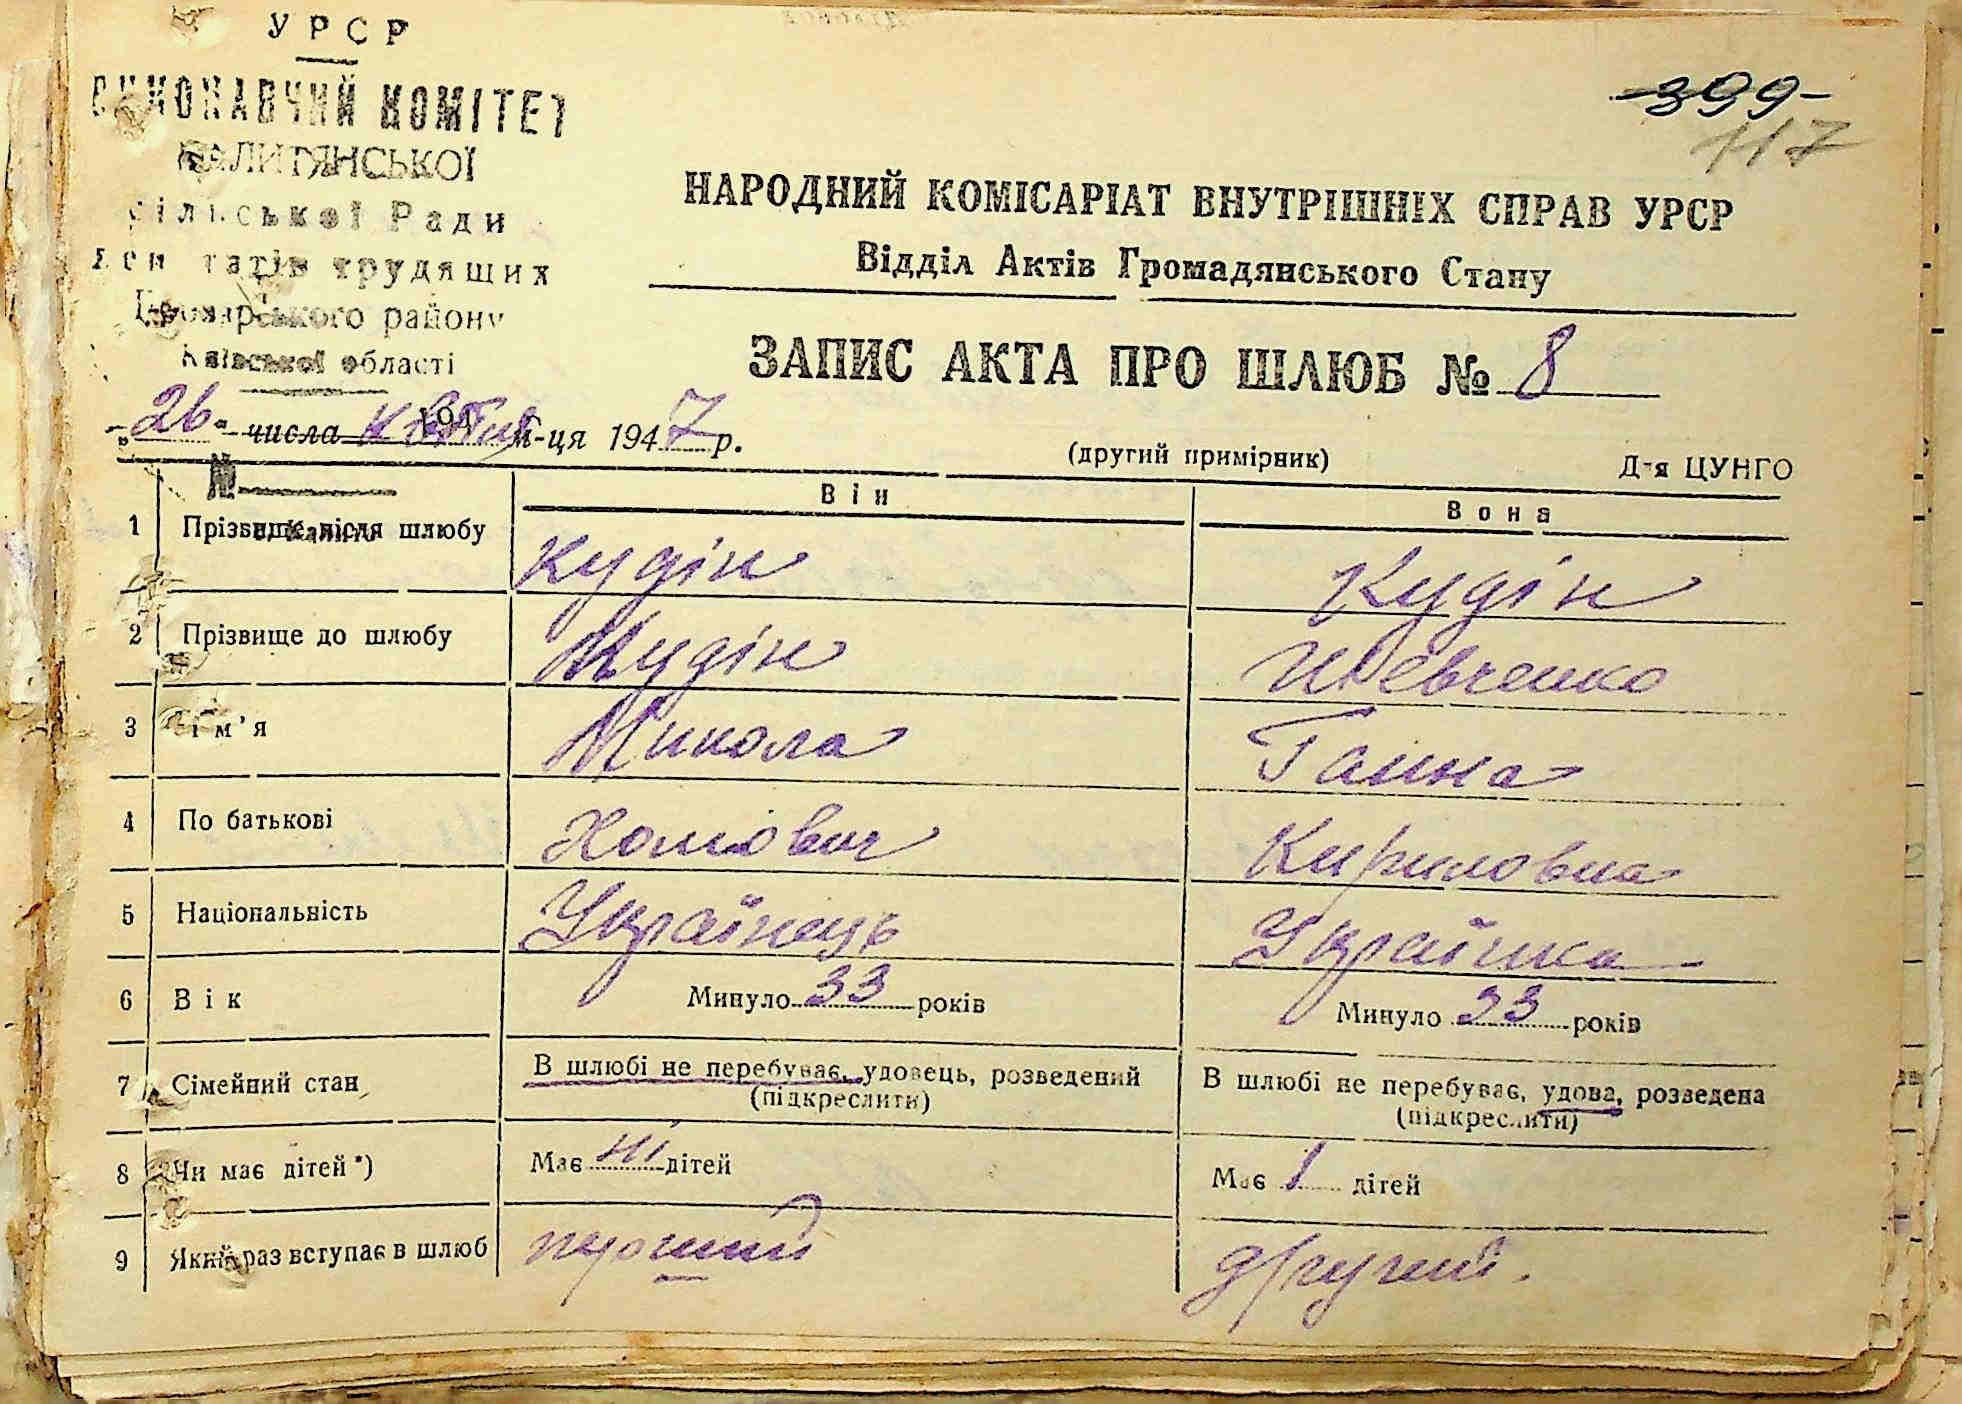 УРСР
ВИКОНАВЧИЙ КОМІТЕТ
КАЛИТЯНСЬКОЇ
сільської Ради
депутатів трудящих
Броварського району
Київської області
399
117
НАРОДНИЙ КОМІСАРІАТ ВНУТРІШНІХ СПРАВ УРСР
Відділ Актів Громадянського Стану
ЗАПИС АКТА ПРО ШЛЮБ № 8
„26“ числа квітня м-ця 1947 р.
194
(другий примірник)
Д-я ЦУНГО
№
Він
Вона
1 Прізвище після шлюбу Кудін Кудін
2 Прізвище до шлюбу Кудін Шевченко
3 Ім’я Микола Ганна
4 По батькові Хомович Кириловна
5 Національність Українець Українка
6 Вік Минуло 33 років Минуло 33 років
7 Сімейний стан В шлюбі не перебуває, удовець, розведений В шлюбі не перебуває, удова, розведена
(підкреслити) (підкреслити)
8 Чи має дітей*) Має ні дітей Має 1 дітей
9 Який раз вступає в шлюб перший другий.